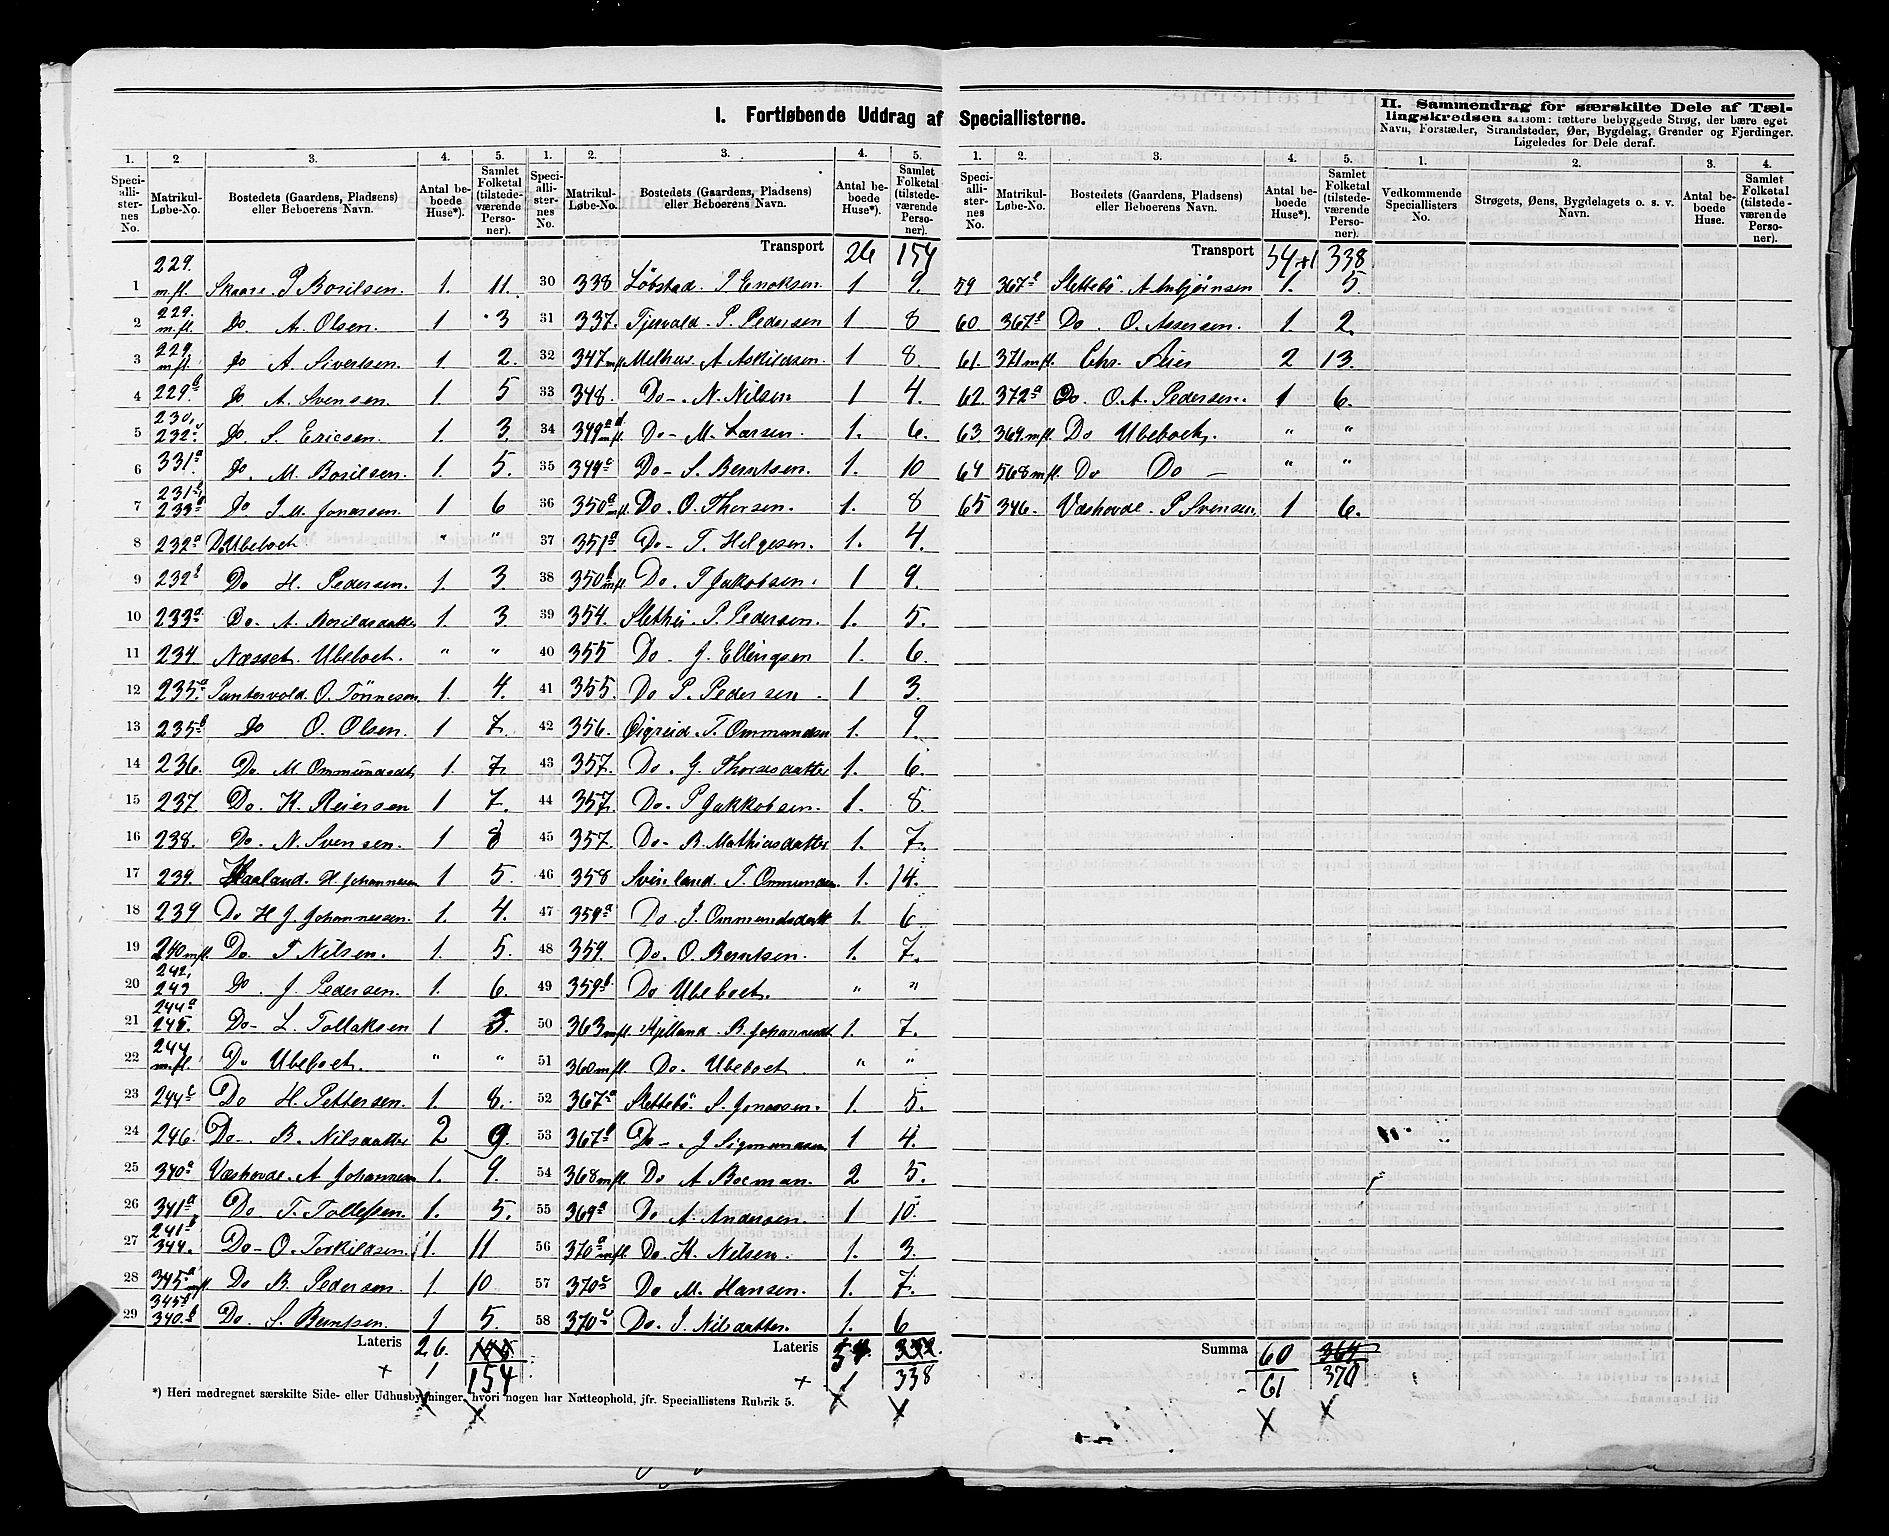 I. Fortløbende Uddrag af Speciallisterne.
II. Sammendrag for særskilte Dele af Tællingskredsen saasom: tættere bebyggede Strøg, der bære eget Navn, Forstæder, Strandsteder, Øer, Bygdelag, Grender og Fjerdinger. Ligeledes for Dele deraf.
1. 2 3. 4. 5.
Speciallisternes No. Matrikul-Løbe-No. Bostedets (Gaardens, Pladsens) eller Beboerens Navn. Antal beboede Huse*). Samlet Folketal (tilstedeværende Personer).
1 229. m.fl. Skaare. P Borilsen. 1. 11.
2 229. m.fl. Do A. Olsen. 1 3
3 229. m.fl. Do A. Sivertsen. 1. 2.
4 229b Do A. Svensen. 1. 5
5 230, 232c Do S. Ericsen. 1. 3.
6 331a Do M. Borilsen. 1. 5.
7 231b, 233b Do J. M. Jonassen. 1 6
8 232a Do Ubeboet " "
9 232b Do H. Pedersen. 1. 3
10 233a Do. A. Borildsdatter 1. 3.
11 234 Næsset. Ubeboet. " "
12 235a Puntervold. O. Tönnesen 1. 4.
13 235b Do O. Olsen. 1 7.
14 236. Do. M. Ommundsdt. 1. 7.
15 237. Do. K. Reiersen 1 7.
16 238. Do. N. Svensen. 1 8
17 239. Haaland. H Johannesen 1 5.
18 239 Do H. J. Johannessen. 1. 4.
19 240 mfl. Do. T Nilsen. 1. 5.
20 242, 243 Do. J. Pedersen. 1. 6.
21 244a 245. Do- L. Tollaksen 1 3.
22 244 m.fl. Do Ubeboet. " "
23 244c Do H. Pettersen. 1. 8.
24 246. Do- B. Nilsdatter 2 9.
25 340a Væshovde. A Johannesen 1. 9.
26 341a Do T. Tollefsen. 1. 5.
27 241b 344. Do- O. Torkildsen. 1. 11
28 345a mfl. Do B. Pedersen. 1. 10
29 345b 340.b Do. S. Berntsen. 1 5.
Lateris 26. 145
+ 1 154
1. 2. 3. 4. 5.
Speciallisternes No. Matrikul-Løbe-No. Bostedets (Gaardens, Pladsens) eller Beboerens Navn. Antal beboede Huse*). Samlet Folketal (tilstedeværende Personer).
Transport 26 154
30 338 Löbstad. T Enoksen 1 9.
31 337. Tjersvald. P. Pedersen 1 8
32 347 mfl. Melhus. A Askildsen. 1 8.
33 348. Do-. N. Nilsen 1 4.
34 349a mfl. Do- M. Larsen. 1. 6.
35 349c Do- S. Berntsen. 1. 10
36 350a mfl. Do. O. Thorsen. 1. 8
37 351a Do- T. Helgesen. 1. 4.
38 350b mfl. Do. T Jakobsen. 1 9.
39 354. Slethei. P. Pedersen. 1. 5.
40 355 Do. J. Ellingsen 1. 6.
41 355. Do P. Pedersen. 1 3.
42 356. Øigreid. T. Ommundsen 1. 9.
43 357. Do. G. Thorsdatter 1. 6.
44 357. Do. P Jakkobsen. 1. 8.
45 357. Do- B. Mathiasdatter 1. 7.
46 358 Svinland. T. Ommundsen. 1. 14.
47 359a Do. J. Ommundsdatt 1. 6
48 359. Do. O. Berntsen. 1. 7.
49 359b. Do Ubeboet. " "
50 363 mfl. Mjelland. B. Johannesdt 1. 7.
51 360 mfl. Do. Ubeboet " "
52 367a Slettebö. S. Jonassen. 1. 5.
53 367b Do-. J Sigmundsen 1 4.
54 368 mfl. Do A Bocman. 2 5.
55 369a Do A. Andersen. 1 10.
56 370a mfl. Do. K. Nilsen. 1. 3.
57 370c Do M. Hansen. 1. 7.
58 370c Do. J. Nilsdatter. 1. 6
Lateris 54. 332.
+ 1 338
*) Heri medregnet særskilte Side- eller Udhusbygninger, hvori nogen har Natteophold, jfr. Speciallistens Rubrik 5.
1. 2. 3. 4. 5.
Speciallisternes No. Matrikul-Løbe-No. Bostedets (Gaardens, Pladsens) eller Beboerens Navn. Antal beboede Huse*). Samlet Folketal (tilstedeværende Personer).
Transport 54+1 338
59 367b Slettebö. A Asbjörnsen 1. 5.
60 367b Do. O. Assersen. 1. 2.
61. 371 mfl. Chr. Feier 2 13.
62. 372a Do. O. A. Pedersen. 1 6.
63 369. mfl. Do Ubeboet. " "
64 568 mfl. Do Do - " "
65 346. Væshovde. P Svensen 1 6.
Summa 60 364
61 370
1. 2. 3. 4.
Vedkommende Speciallisters No. Strøgets, Øens, Bygdelagets o. s. v. Navn. Antal beboede Huse. Samlet Folketal (tilstedeværende Personer).